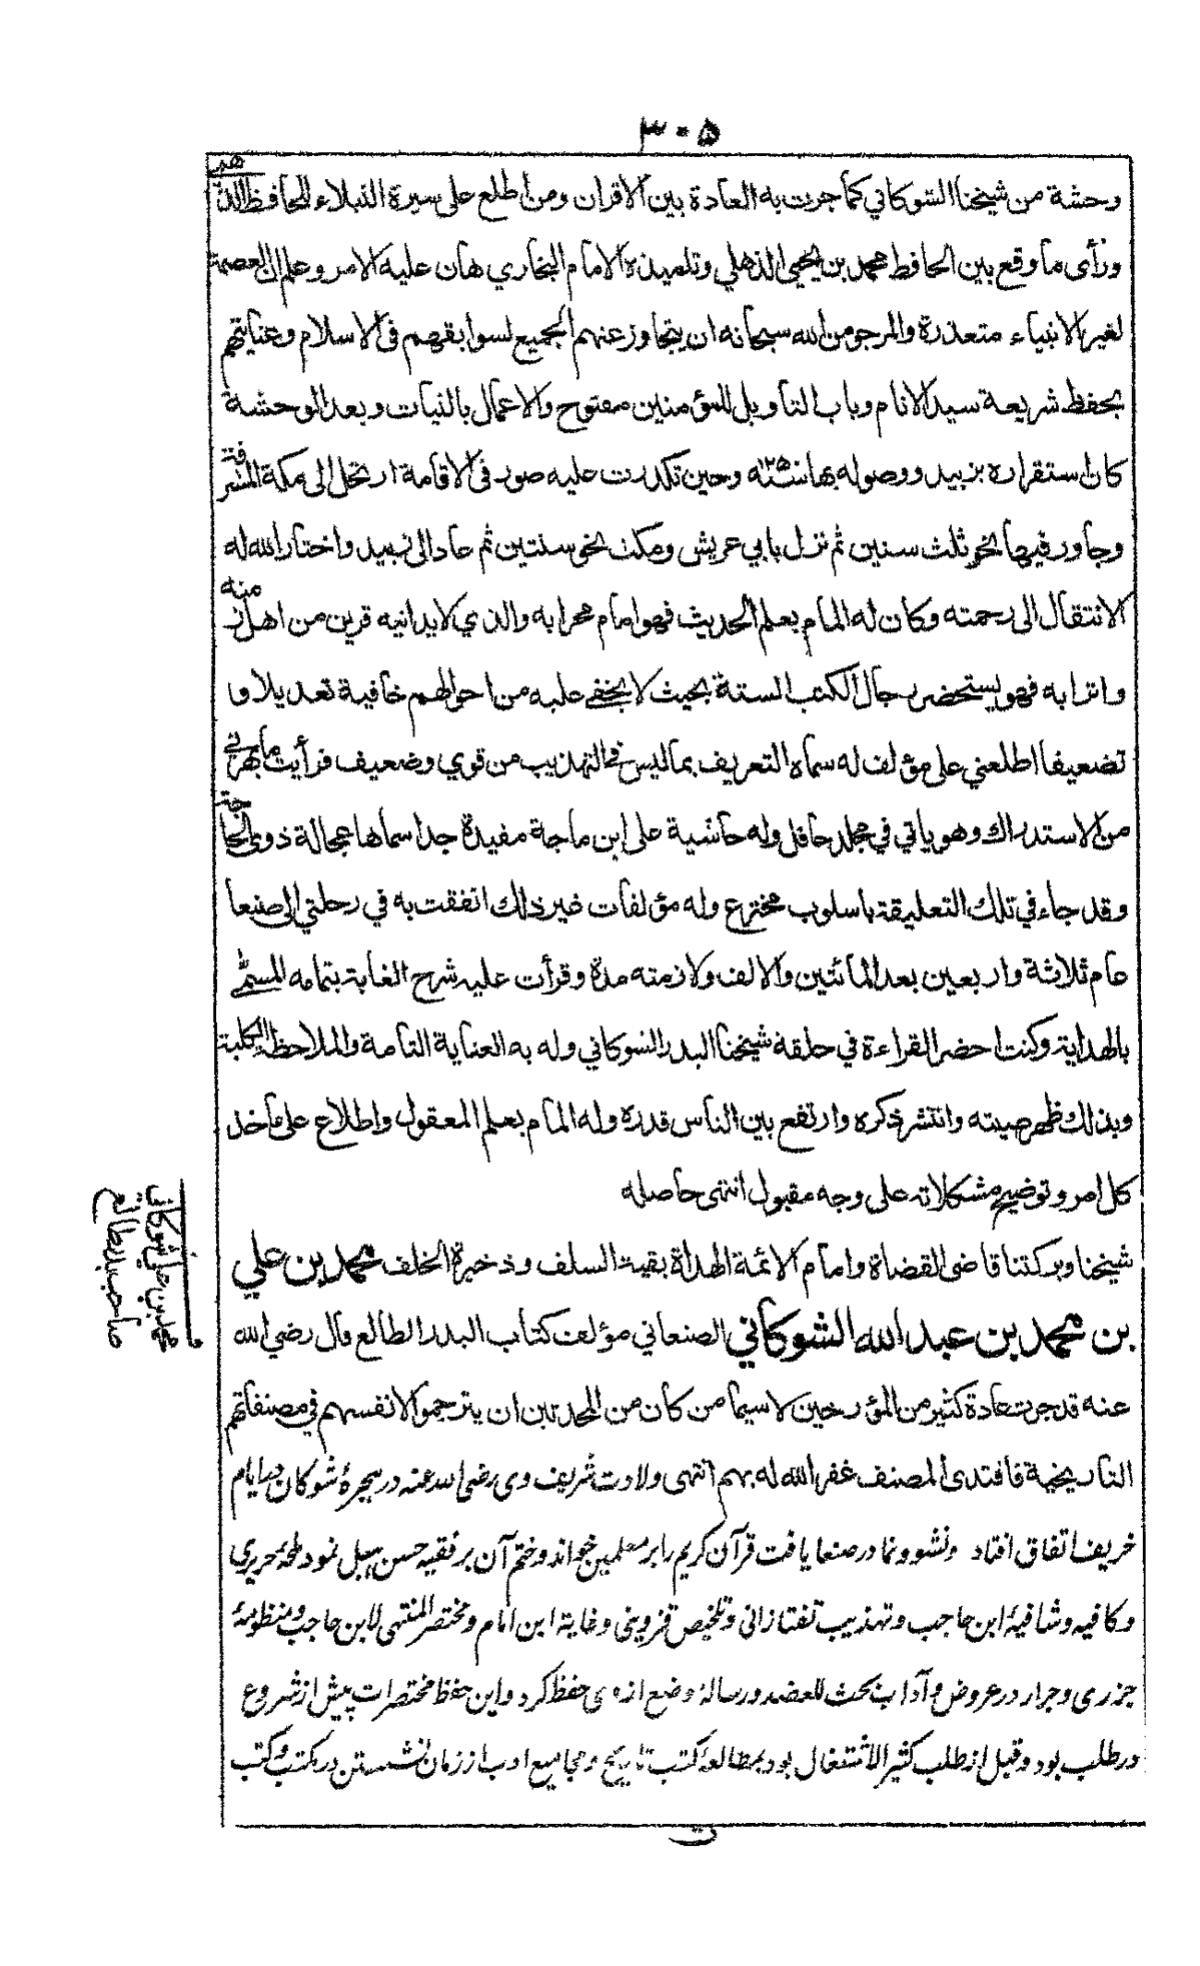 ۳۰۵
وحشة من شيخنا الشوكاني كما جرت به العادة بين الاقران ومن اطلع على سيرة النبلاء للحافظ الذهبي
ورأى ما وقع بين الحافظ محمد بن يحيى الذهلي وتلميذه الامام البخاري هان عليه الامر وعلم ان العصمة
لغير الانبياء متعذرة والمرجو من الله سبحانه ان يتجاوز عنهم الجميع لسوابقهم فى الاسلام وعنايتهم
بحفظ شريعة سيد الانام وباب التاويل للمؤمنين مفتوح والاعمال بالنيات وبعد الوحشة
كان استقراره بزبيد ووصوله بها سنة وحين تكدرت عليه صور فى الاقامة ارتحل الى مكة المشرفة
وجاور فيها نحو ثلث سنين ثم نزل بابي عريش ومكث نحو سنتين ثم عاد الى زبيد واختار الله له
الانتقال الى رحمته وكان له المام بعلم الحديث فهو امام محرابه والذي لا يدانيه قرين من اهل زمنه
واترابه فهو يستحضر رجال الكتب الستة بحيث لا يخفى عليه من احوالهم خافية تعديلا و
تضعيفا اطلعني على مؤلف له سماه التعريف بما ليس فى التهذيب من قوي وضعيف فرأيت ما بهرني
من الاستدراك وهو ياتي في مجلد حافل وله حاشية على ابن ماجة مفيدة جدا سماها عجالة ذوى الحاجة
وقد جاء في تلك التعليقة باسلوب مخترع وله مؤلفات غير ذلك اتفقت به في رحلتي الى صنعا
عام ثلاثة واربعين بعد المائتين والالف ولازمته مدة وقرأت عليه شرح الغاية بتمامه المسمى
بالهداية وكنت احضر القراءة في حلقة شيخنا البدر الشوكاني وله به العناية التامة والملاحظة الكلية
وبذلك ظهر صيته وانتشر ذكره وارتفع بين الناس قدره وله المام بعلم المعقول واطلاع على مأخذ
كل امر وتوضيح مشكلاته على وجه مقبول انتهى حاصله
شيخنا وبركتنا قاضى القضاة وامام الائمة الهداة بقية السلف وذخيرة الخلف محمد بن علي
بن محمد بن عبد الله الشوكاني الصنعاني مؤلف كتاب البدر الطالع قال رضي الله
عنه قد جرت عادة كثير من المؤرخين لا سيما من كان من المحدثين ان يترجموا لانفسهم في مصنفاتهم
التاريخية فاقتدى المصنف غفر الله له بهم انتهى ولادت شريف وى رضى الله عنه در هجرۀ شوكان در ايام
خريف اتفاق افتاد ونشو ونما در صنعا يافت قرآن كريم را بر معلمين خواند وختم آن بر فقيه حسن هبل نمود ملحۀ حريرى
وكافيه وشافيۀ ابن حاجب وتهذيب تفتازانى وتلخيص قزوينى وغاية ابن امام ومختصر المنتهى لابن حاجب ومنظومۀ
جزرى وجرار در عروض وآداب بحث للعضد ورسالۀ وضع ازوى حفظ كرد واين حفظ مختصرات پيش از شروع
در طلب بود وقبل از طلب كثير الاشتغال بود بمطالعۀ كتب تاريخ ومجاميع ادب از زمان نشستن در مكتب وكتب
محمد بن على شوكانى
صاحب بدر طالع